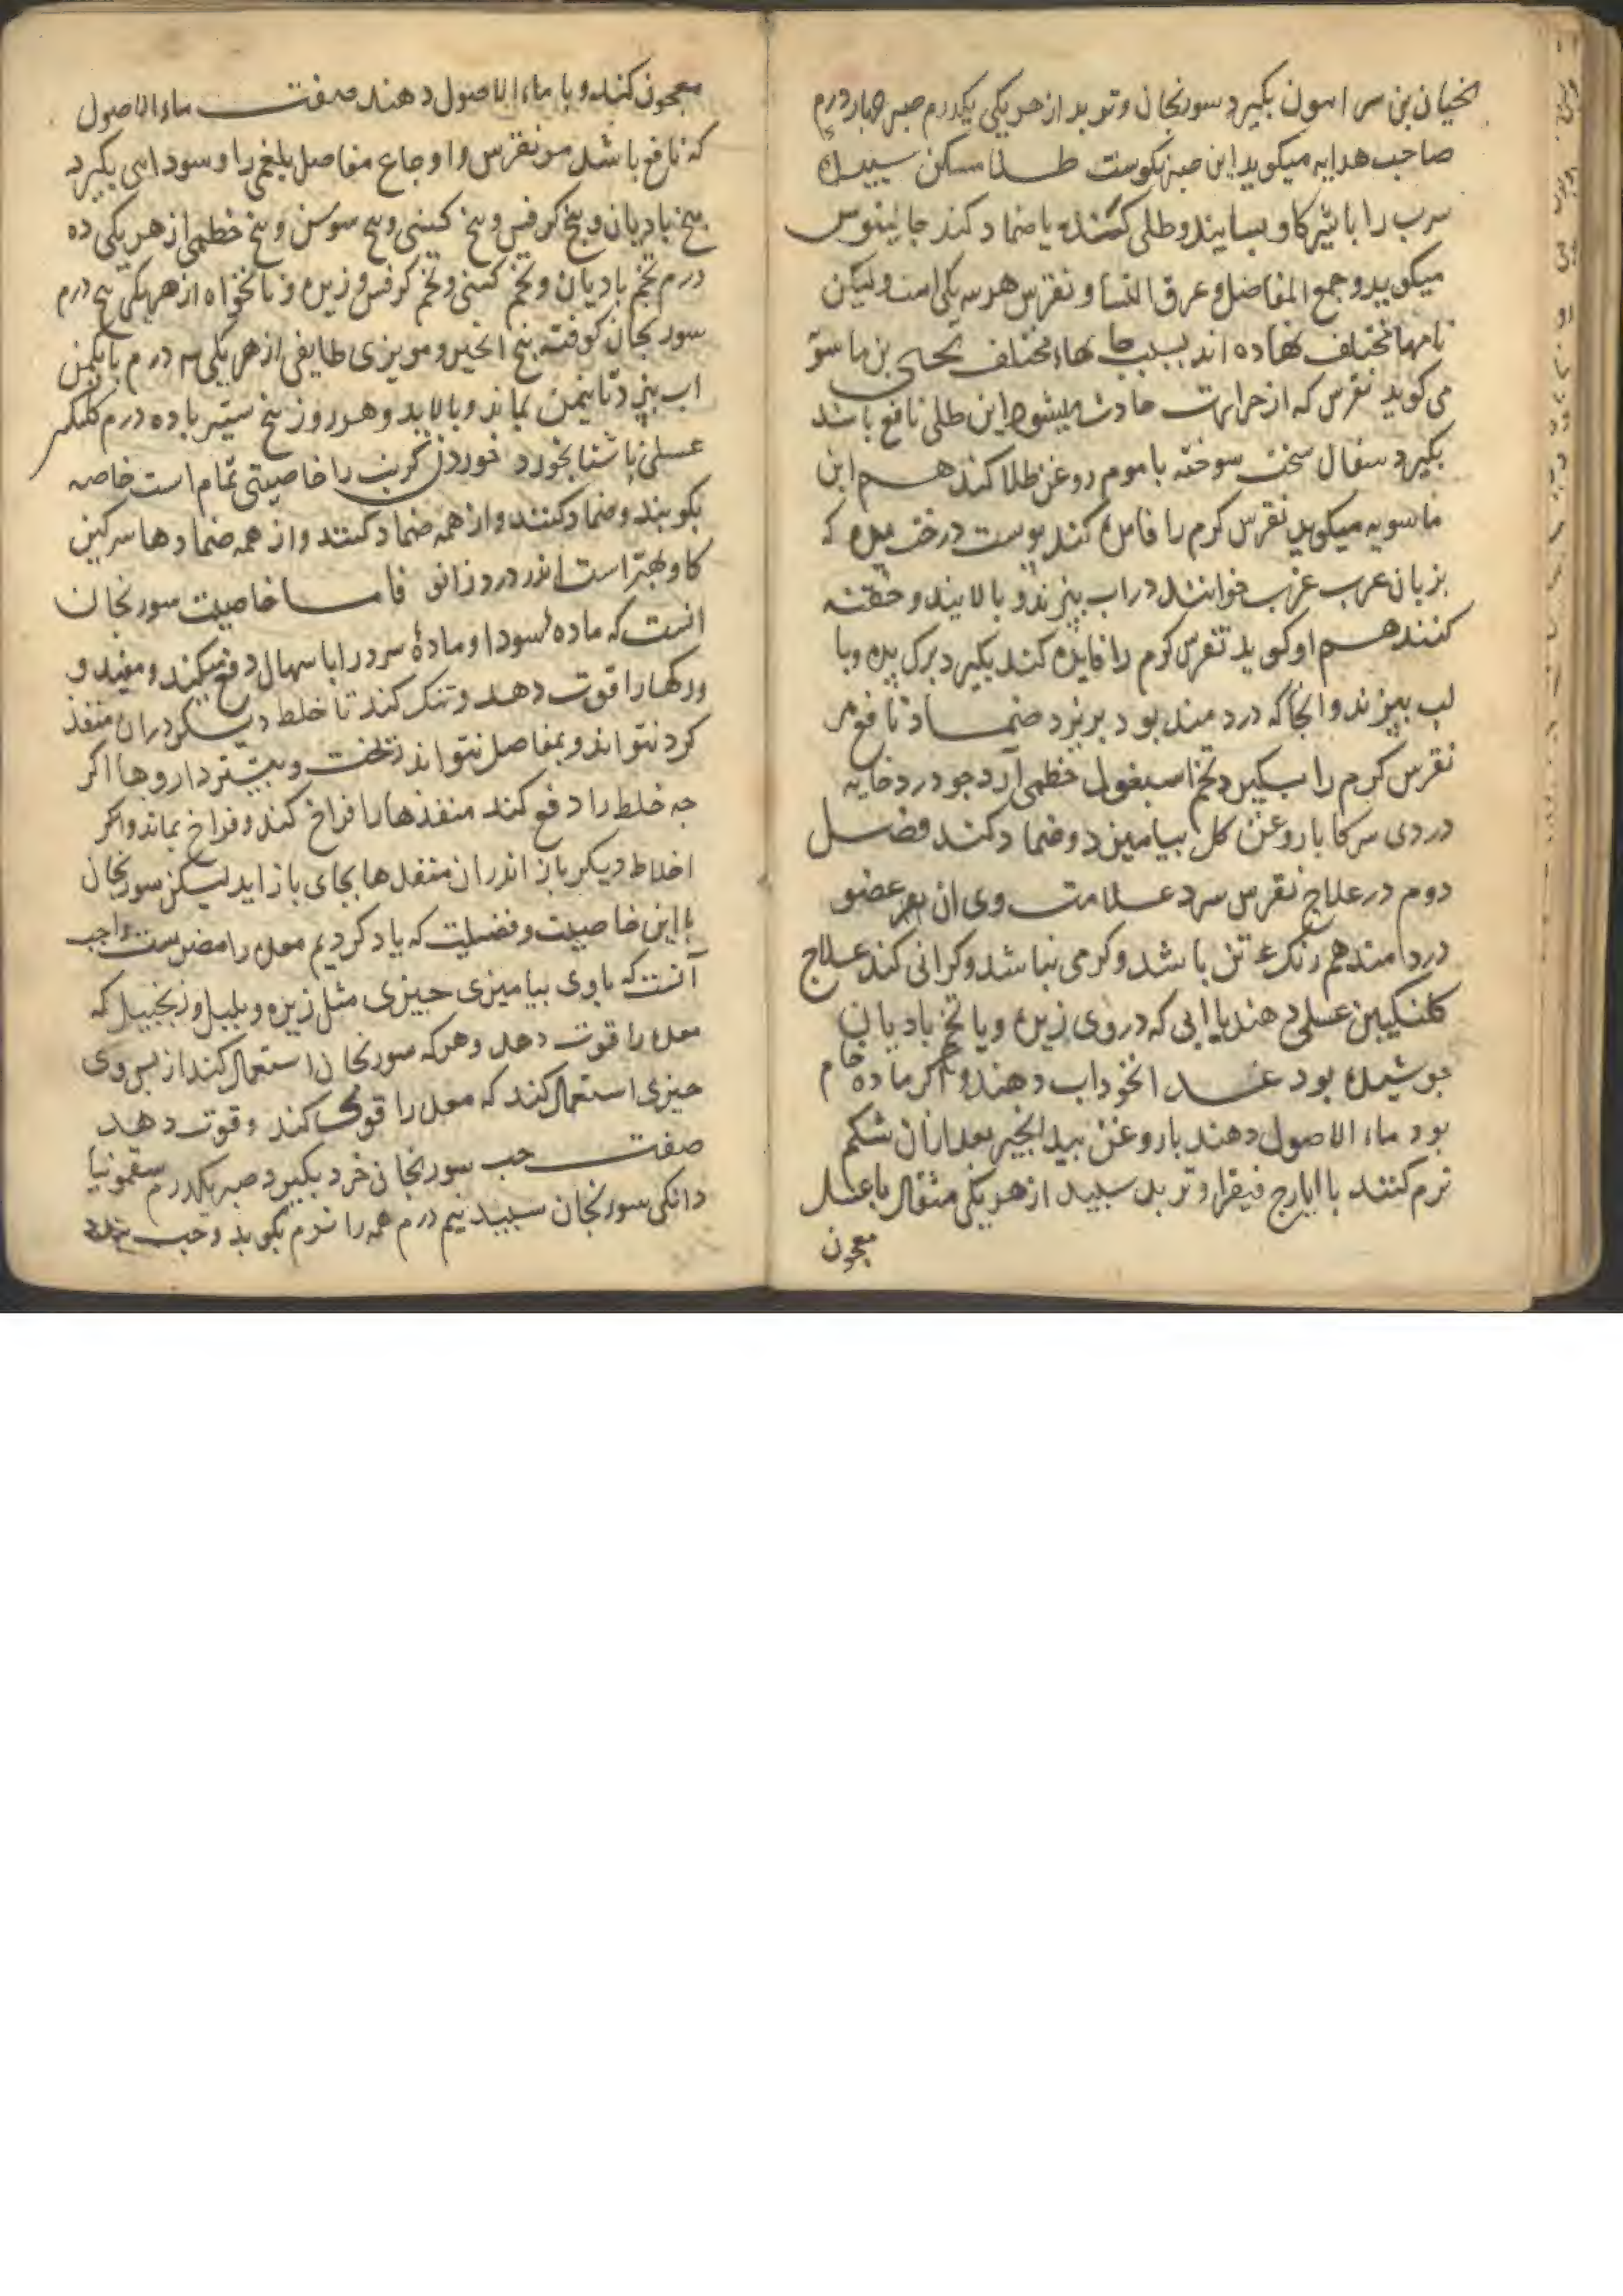 بن سراسون بگیرد سورنجان و تربد از هر یکی یکدرم صبر چهار درم
صاحب هدایه میکوید این صبر نکوست طلا مسکن سپیده
سرب را با شیر کاو بسایند و طلی کنند یا ضماد کند جالینوس
میکوید وجمع المفاصل و عرق النسا و نقرس هر سه یکی است ولیکن
نامها مختلف نهاده اند بسبب جا بهاء مختلف یحیی بن ماسو
می کوید نقرس که از حرارت حادث میشود این طلی نافع باشد
بکیرد سفال سخت سوخته با موم روغن طلا کند هم ابن
ماسویه میکوید نقرس کرم را فایده کند پوست درخت بیده که
بزبان عرب غرب خوانند در اب بپزند و بالایند و حقنه
کنند هم او کوید نقرس کرم را فایده کند بکیرد برک بیده و با
لب بپزند و انجا که دردمند بود بریزد ضماد نافع مر
نقرس کرم را بکیرد تخم اسبغول خطمی آرد جو درد خایه
دردی سرکا با روغن کل بیامیزد و ضماد کند فصل
دوم در علاج نقرس سرد علامت وی ان بود عضو
دردامند هم رنک تن باشد و کرمی نباشد و کرانی کند علاج
کلنکبین عسلی دهند با ابی که در وی زیره و یا تخم بادیان
جوشیده بود غدا نخوداب دهند و اکر ماده خام
بود ماء الاصول دهند با روغن بید انجیر بعد ازان شکم
نرم کنند با ایارج فیقرا و تربد سپید از هر یکی مثقال با عسل
معجون
معجون کند و با ماء الاصول دهند صفت ماء الاصول
که نافع باشد مر نقرس و اوجاع مفاصل بلغمی را و سودای بکیرد
بیخ بادیان و بیخ کرفس و بیخ کسنی و بیخ سوسن و بیخ خطمی از هر یکی ده
درم تخم بادیان و تخم کسنی و تخم کرفس و زیره و نانخواه از هر یکی پنج درم
سورنجان کوفته پنج انجیر و مویزی طایفی از هر یکی درم با یکمن
اب بپزد تا نیمن بماند و بالاید و هر روز پنج ستیر با ده درم کلنک
عسلی ناشتا بخورد خوردن کرنب را خاصیتی تمام است خاصه
بکوبند و ضماد کنند و از همه ضماد کنند و از همه ضمادها سرکین
کاو بهتر است اندر درد زانو فاما خاصیت سورنجان
انست که ماده سودا و مادهٔ سرد را با سهال دفع میکند و مفید و
رکها را قوت دهد و تنک کند تا خلط دیکر دران منفذ
کرد نتواند و بمفاصل نتواند ریخت و بیشتر داروها اکر
چه خلط را دفع کند منفذها را فراخ کند و فراخ بماند واکر
اخلاط دیکر باز اندران منفذها بجای باز اید لیکن سورنجان
با این خاصیت و فضیلت که یاد کردیم معده را مضرست واجب
آنست که باوی بیامیزی چیزی مثل زیره و پلپل و زنجبیل که
معده را قوت دهد و هر که سورنجان استعمال کند از پس وی
چیزی استعمال کند که معده را قوی کند و قوت دهد
صفت حب سورنجان خرد بکیرد صبر یکدرم سقمونیا
دانکی سورنجان سپید نیم درم همه را نرم بکوبد و حب